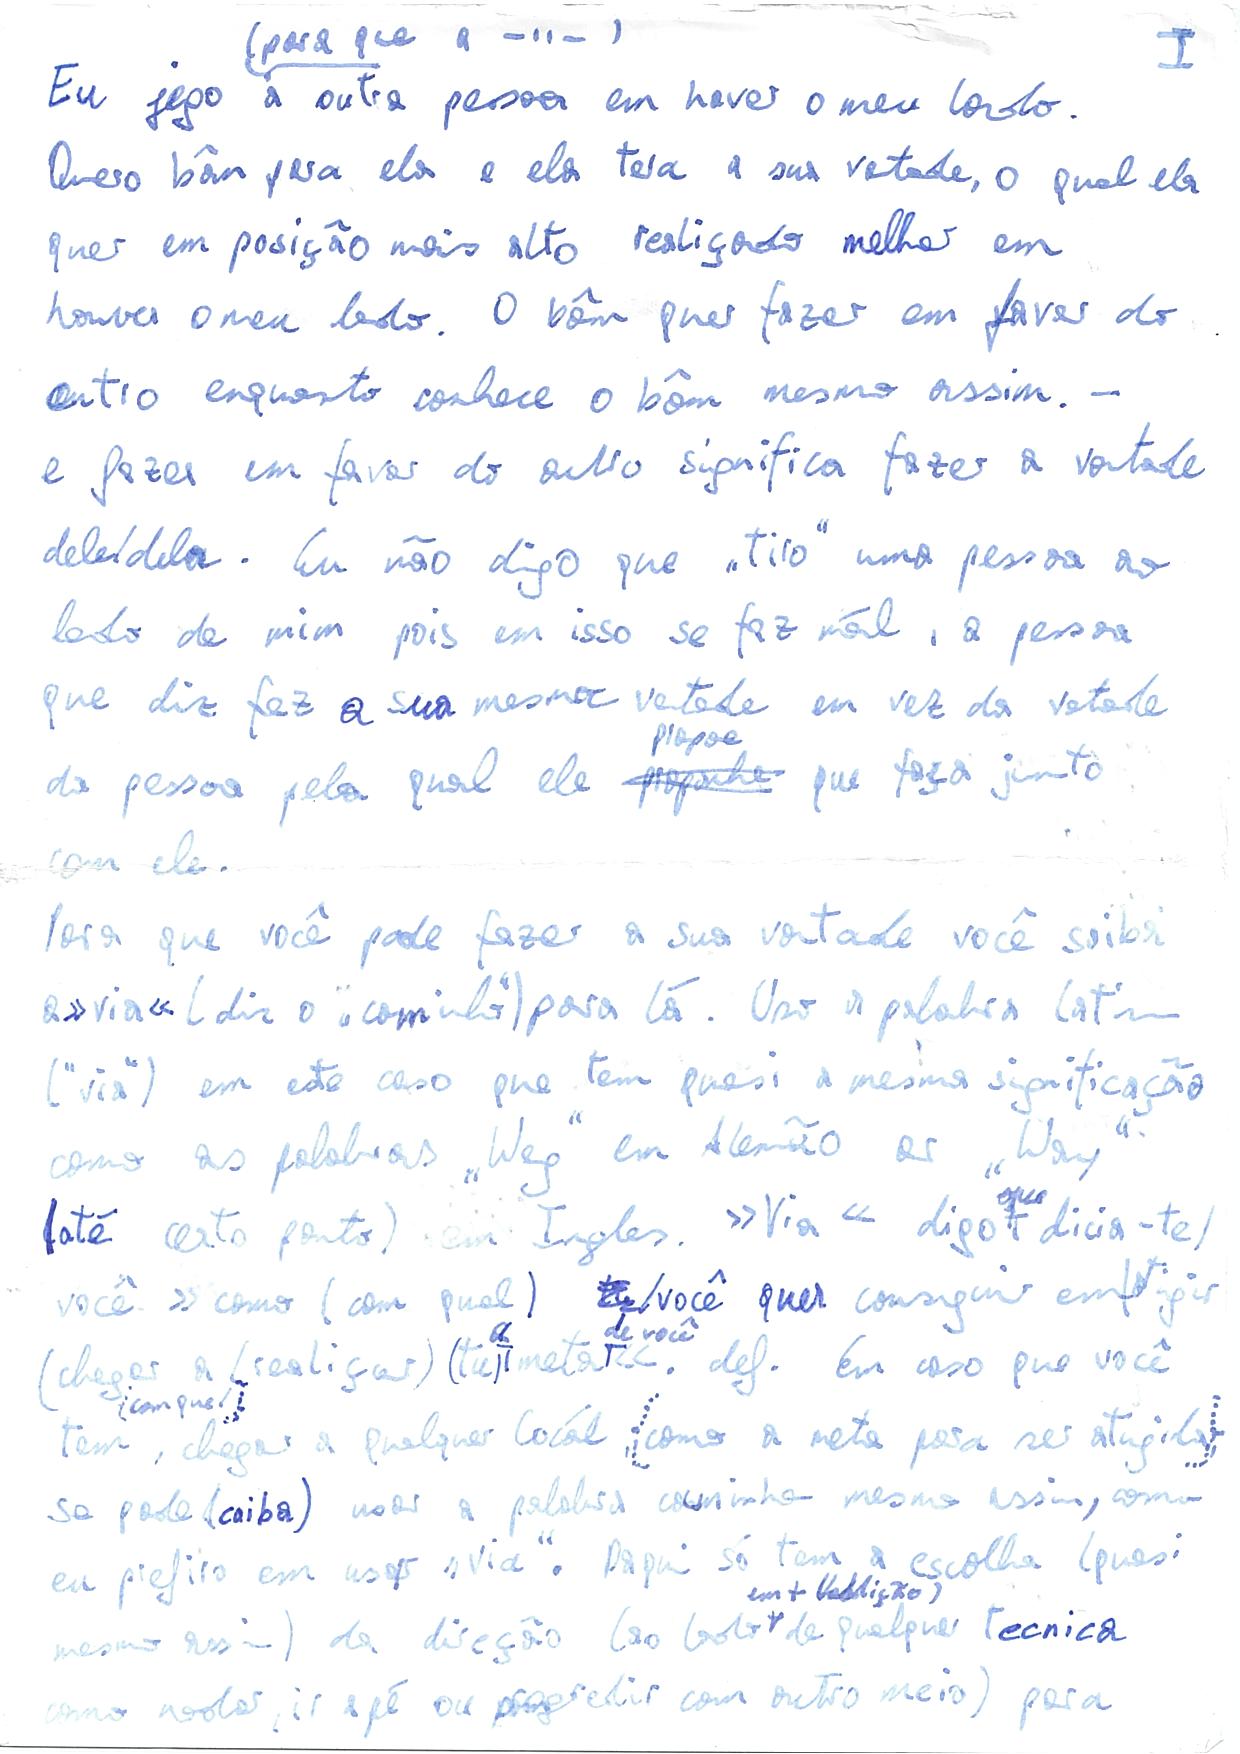 (para que a -"- )
I
Eu jego à outra pessoa em haver o meu lado.
Quero bâm para ela e ela tera a sua votade, o qual ela
quer em posição mais alto realiçado melhor em
houver o meu lado. O bâm quer fazer em favor do
outro enquanto conhece o bâm mesmo assim. –
e fazer em favor do outro significa fazer a vontade
dele/dela. Eu não digo que „tiro“ uma pessoa ao
lado de mim pois em isso se faz mál, a pessoa
que diz faz a sua mesma votade em vez da votade
propoe
da pessoa pela qual ele que faça junto
com ele.
Para que você pode fazer a sua vontade você saiba
a »via« (diz o "caminho") para lá. Uso a palabra Latin
("via") em este caso que tem quasi a mesma significação
como as palabras „Weg“ em Alemão or „Way“
(até certo ponto) em Ingles. »Via« digo que dicia-te/
você »como (com qual) /você quer conseguir em/atigir
de você
(chegar a/realiçar) (tu) a meta «. def. Em caso que você
(com que)
tem, chegar a qualquer locál (como a meta para ser atingida)
se pode (caiba) usar a palabra caminho mesmo assim, como
eu prefiro em usar »Via“. Daqui só tem a escolha (quasi
em +
mesmo assim) da direção (ao lado de qualquer Tecnica
como nadar, ir a pé ou progredir com outro meio) para